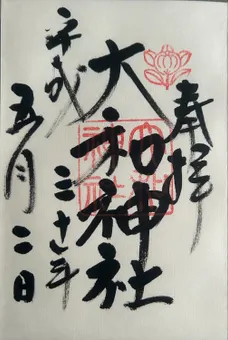 奉拝
大和神社
平成三十年
五月二日